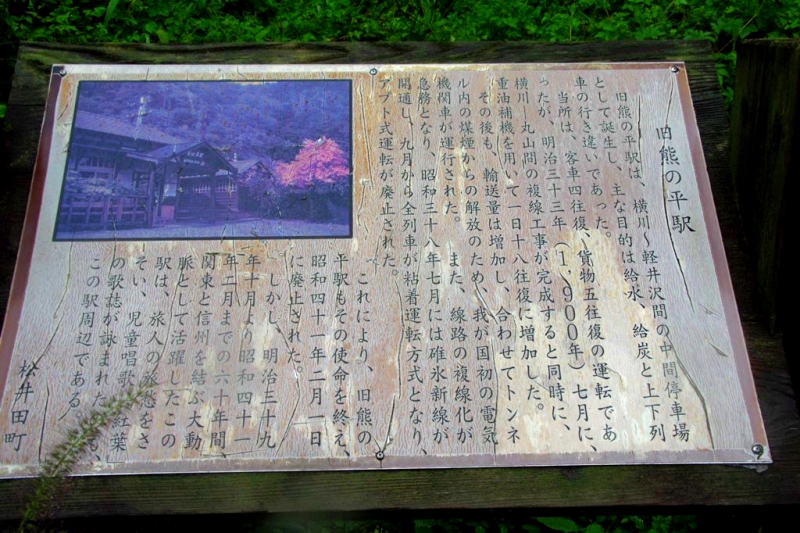 旧熊の平駅
旧熊の平駅は、横川〜軽井沢間の中間停車場
として誕生し、主な目的は給水、給炭と上下列
車の行き違いであった。
当所は、客車四往復、貨物五往復の運転であ
ったが、明治三十三年（1,900年）七月に、
横川―丸山間の複線工事が完成すると同時に、
重油補機を用いて一日十八往復に増加した。
その後も、輸送量は増加し、合わせてトンネ
ル内の煤煙からの解放のため、我が国初の電気
機関車が運行された。また、線路の複線化が
急務となり、昭和三十八年七月には碓氷新線が
開通し、九月から全列車が粘着運転方式となり、
アプト式運転が廃止された。
これにより、旧熊の
平駅もその使命を終え、
昭和四十一年二月一日
に廃止された。
しかし、明治三十九
年十月より昭和四十一
年二月までの六十年間、
関東と信州を結ぶ大動
脈として活躍したこの
駅は、旅人の旅愁をさ
そい、児童唱歌「紅葉
の歌詩が詠まれた
この駅周辺である。
松井田町